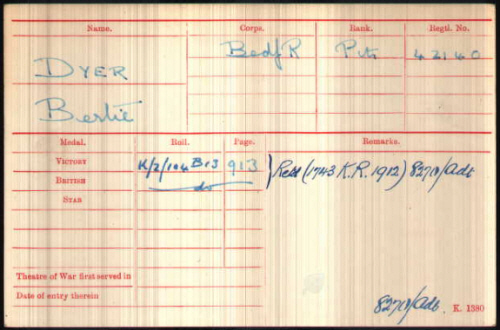 Name. Corps. Rank. Regtl. No.
DYER BedfR Pte 42140
Bertie
Medal. Roll. Page. Remarks.
VICTORY K/2/104 B13 913
BRITISH do (1743 K.R. 1912) 8270/Adt
STAR
Theatre of War first served in
Date of entry therein
8270/Adt. K. 1380